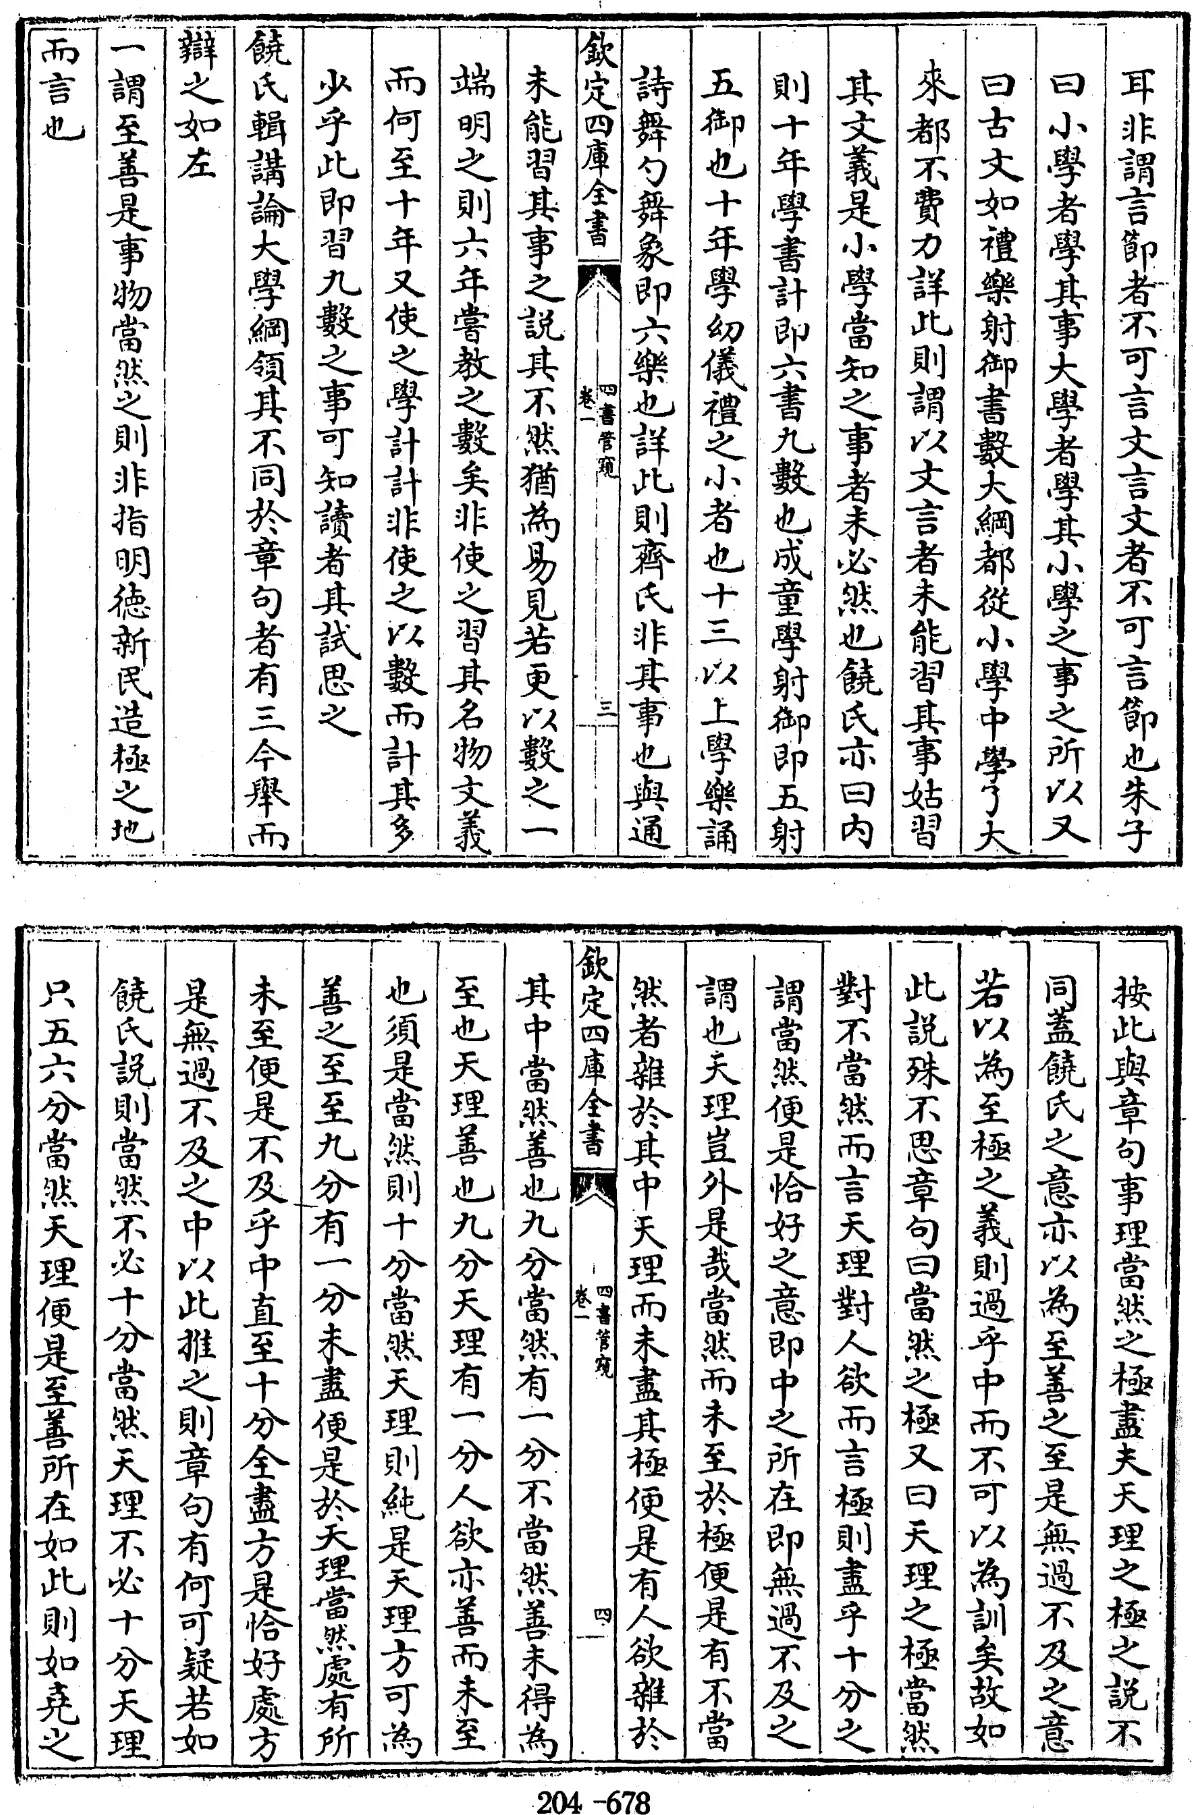 耳非謂言節者不可言文言文者不可言節也朱子
曰小學者學其事大學者學其小學之事之所以又
曰古文如禮樂射御書數大綱都從小學中學了大
來都不費力詳此則謂以文言者未能習其事姑習
其文義是小學當知之事者未必然也饒氏亦曰内
則十年學書計即六書九數也成童學射御即五射
五御也十年學幼儀禮之小者也十三以上學樂誦
詩舞勺舞象即六樂也詳此則齊氏非其事也與通
欽定四庫全書
四書管窺
卷一
三
未能習其事之説其不然猶為易見若更以數之一
端明之則六年嘗教之數矣非使之習其名物文義
而何至十年又使之學計計非使之以數而計其多
少乎此即習九數之事可知讀者其試思之
饒氏輯講論大學綱領其不同於章句者有三今舉而
辯之如左
一謂至善是事物當然之則非指明德新民造極之地
而言也
按此與章句事理當然之極盡夫天理之極之説不
同蓋饒氏之意亦以為至善之至是無過不及之意
若以為至極之義則過乎中而不可以為訓矣故如
此説殊不思章句曰當然之極又曰天理之極當然
對不當然而言天理對人欲而言極則盡乎十分之
謂當然便是恰好之意即中之所在即無過不及之
謂也天理豈外是哉當然而未至於極便是有不當
然者雜於其中天理而未盡其極便是有人欲雜於
欽定四庫全書
四書管窺
卷一
四
其中當然善也九分當然有一分不當然善未得為
至也天理善也九分天理有一分人欲亦善而未至
也須是當然則十分當然天理則純是天理方可為
善之至至九分有一分未盡便是於天理當然處有所
未至便是不及乎中直至十分全盡方是恰好處方
是無過不及之中以此推之則章句有何可疑若如
饒氏説則當然不必十分當然天理不必十分天理
只五六分當然天理便是至善所在如此則如堯之
204-678